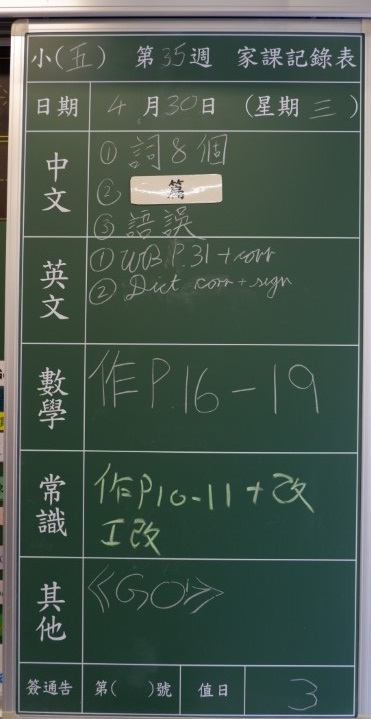 小(五) 第35週 家課記錄表
日期 4月30日 (星期三)
中文
① 詞8個
② 篇
③ 語誤
英文
① WB P.31 + corr
② Dict corr + sign
數學
作P.16-19
常識
作P10-11+改
工改
其他
《GO》
簽通告 第( )號 值日 3